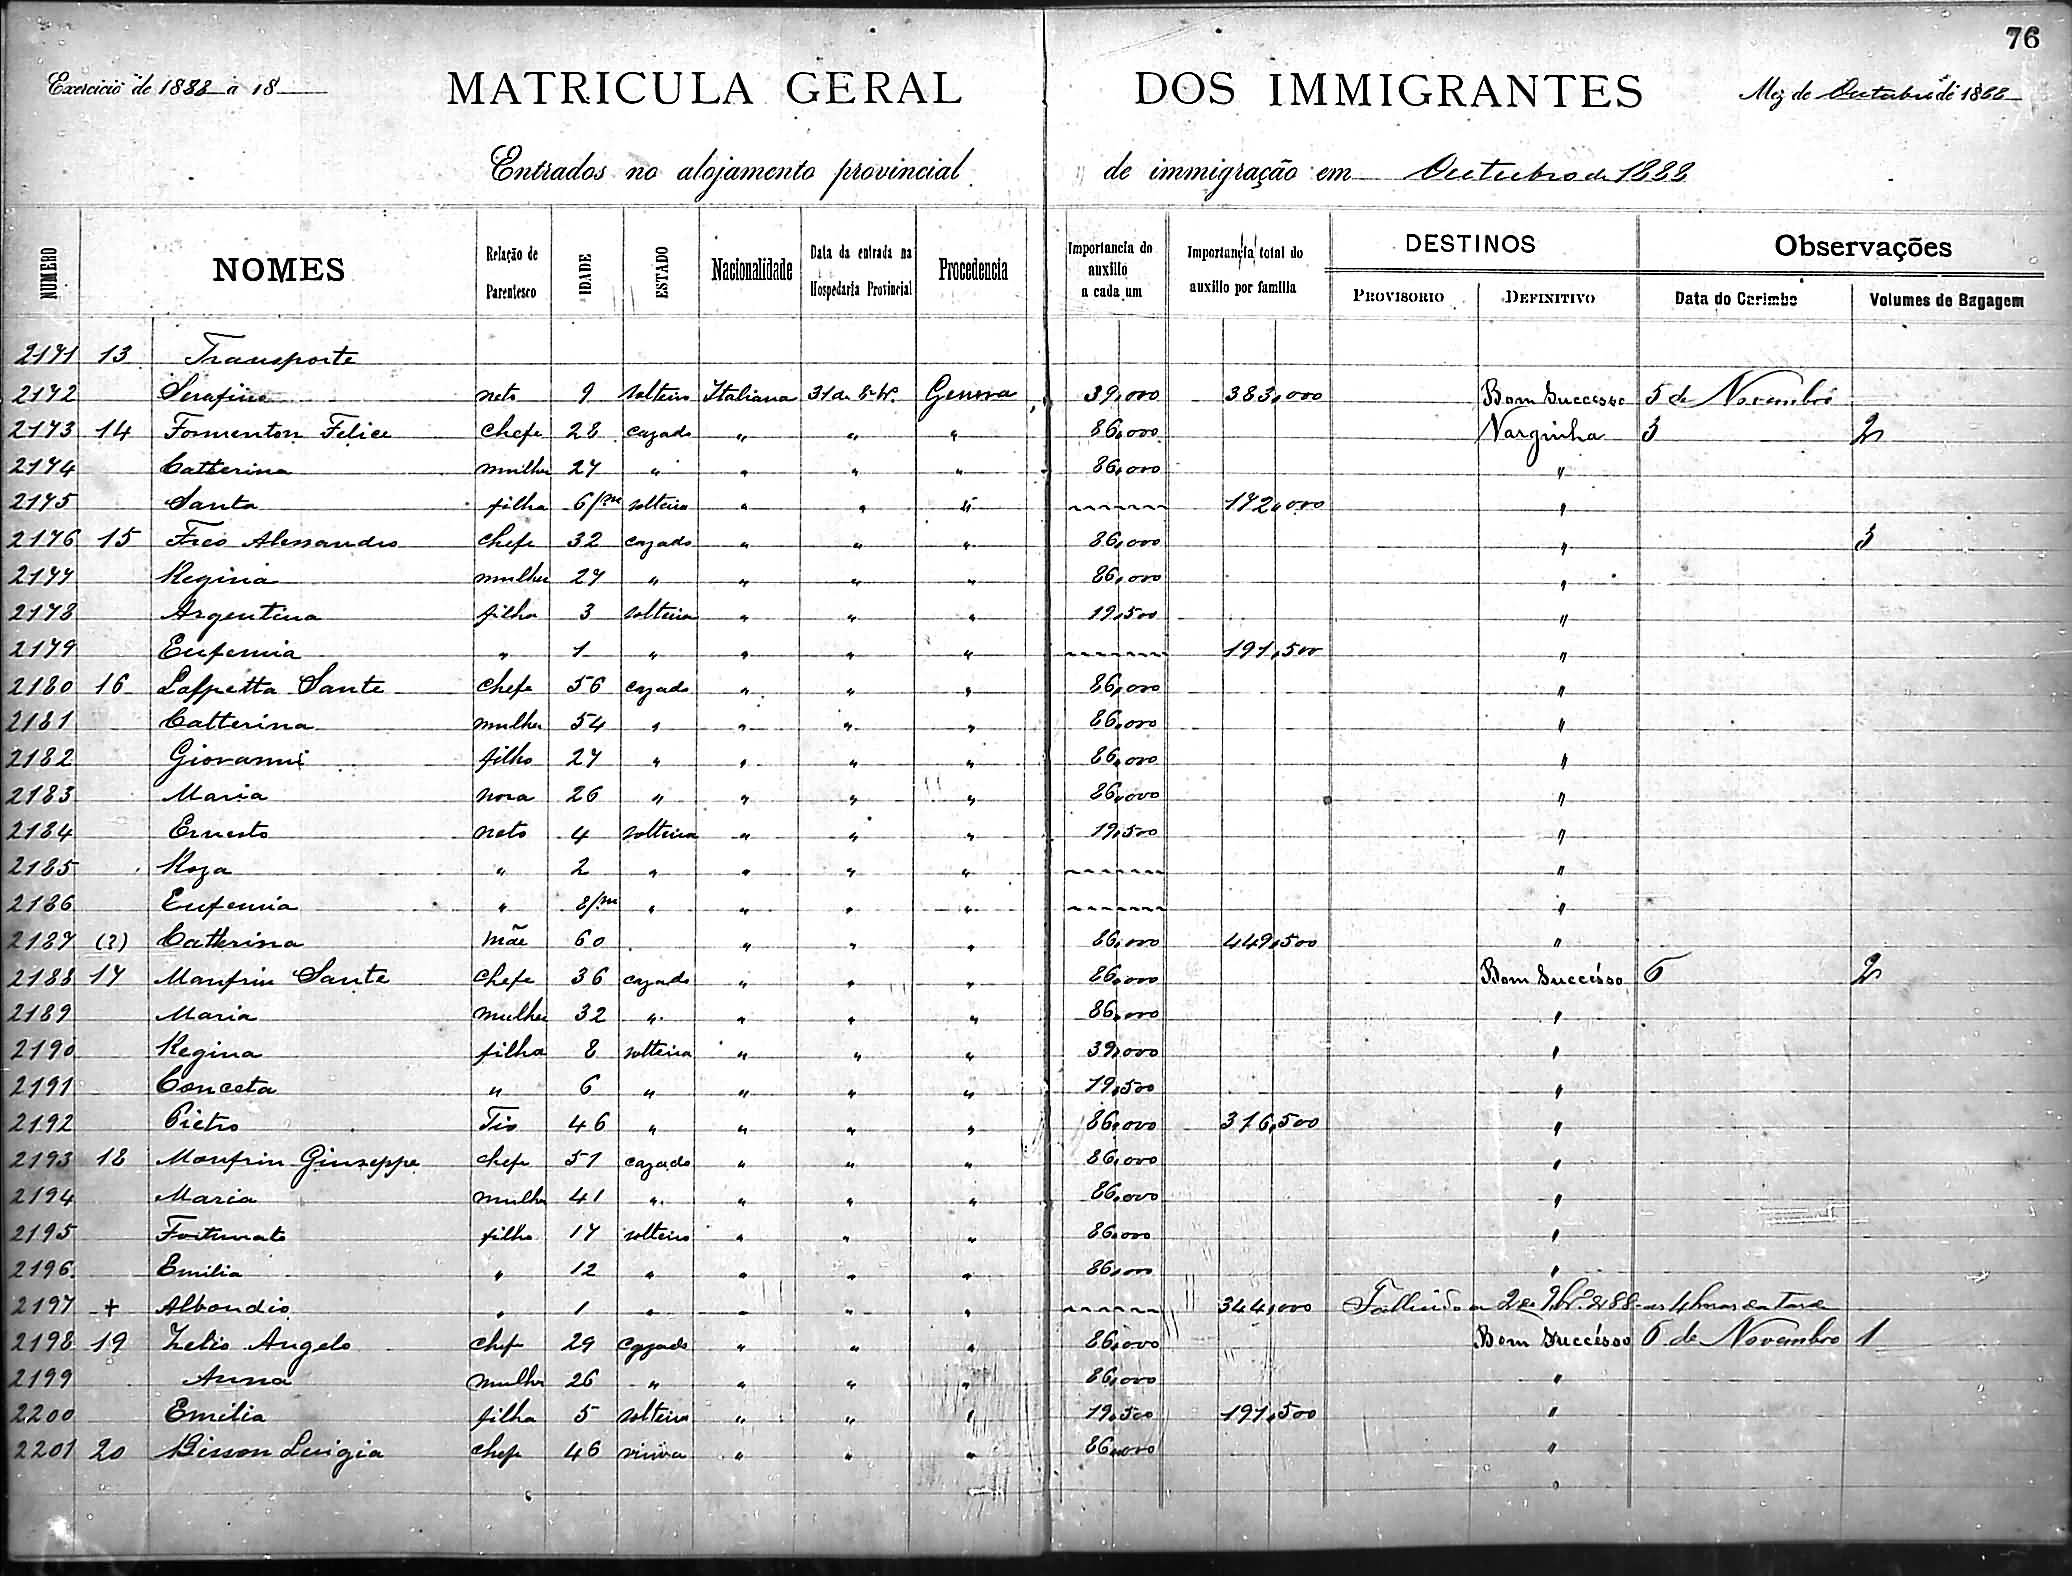 76
Exercicio de 1888 a 18
MATRICULA GERAL DOS IMMIGRANTES
Mez de Outubro de 1888
Entrados no alojamento provincial de immigração em Outubro de 1888
NUMERO NOMES Relação de Parentesco IDADE ESTADO Nacionalidade Data da entrada na Hospedaria Provincial Procedencia Importancia do auxilio a cada um Importancia total do auxilio por familia DESTINOS PROVISORIO DEFINITIVO Observações Data do Carimbo Volumes de Bagagem
2171 13 Transporte
2172 Serafino neto 9 solteiro Italiana 31 de Genova 39,000 383,000 Bom Successo 5 de Novembro
2173 14 Formenton Felice chefe 28 cazado " " " 86,000 Varginha 3 2
2174 Catterina mulher 27 " " " " 86,000 "
2175 Santa filha 6/m solteira " " " 172,000 "
2176 15 Fico Alessandro chefe 32 cazado " " " 86,000 " 3
2177 Regina mulher 27 " " " " 86,000 "
2178 Argentina filha 3 solteira " " " 19,500 "
2179 Eufemia " 1 " " " " 191,500 "
2180 16 Sante chefe 56 cazado " " " 86,000 "
2181 Catterina mulher 54 " " " " 86,000 "
2182 Giovanni filho 27 " " " " 86,000 "
2183 Maria nora 26 " " " " 86,000 "
2184 Ernesto neto 4 solteira " " " 19,500 "
2185 Roza " 2 " " " " "
2186 Eufemia " 8/m " " " " "
2187 (?) Catterina mãe 60 " " " 86,000 449,500 "
2188 17 Manfrin Sante chefe 36 cazado " " " 86,000 Bom Successo 6 2
2189 Maria mulher 32 " " " " 86,000 "
2190 Regina filha 8 solteira " " " 39,000 "
2191 Conceta " 6 " " " " 19,500 "
2192 Pietro Tio 46 " " " " 86,000 316,500 "
2193 18 Manfrin Giuseppe chefe 51 cazado " " " 86,000 "
2194 Maria mulher 41 " " " " 86,000 "
2195 Fortunato filho 17 solteiro " " " 86,000 "
2196 Emilia " 12 " " " " 86,000 "
2197 + Albondio " 1 " " " " 344,000 Fallecido a 2 de 9br.º 1888 as 4 horas da tarde
2198 19 Zelio Angelo chefe 29 cazado " " " 86,000 Bom Successo 6 de Novembro 1
2199 Anna mulher 26 " " " " 86,000 "
2200 Emilia filha 5 solteira " " " 19,500 191,500 "
2201 20 Bisson Luigia chefe 46 viuva " " " 86,000 "